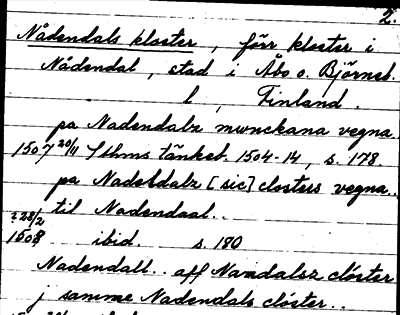 2.
Nådendals kloster, förr kloster i
Nådendal, stad i Åbo o. Björneb.
l, Finland.
pa Nadendalz mwnckana vegna
1507 20/11 Sthms tänkeb. 1504-14, s. 178.
pa Nadeldalz [sic] closters vegna..
til Nadendaal..
? 28/2
1508 ibid. s. 180
Nadendall.. aff Nandalsz clöster
j samme Nadendals clöster..